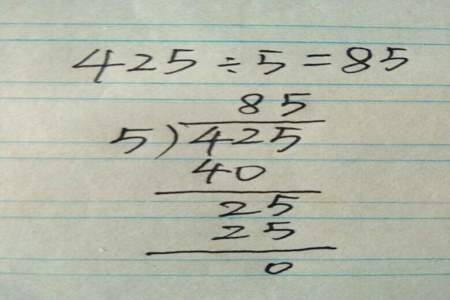 425÷5=85
85
5)425
40
25
25
0